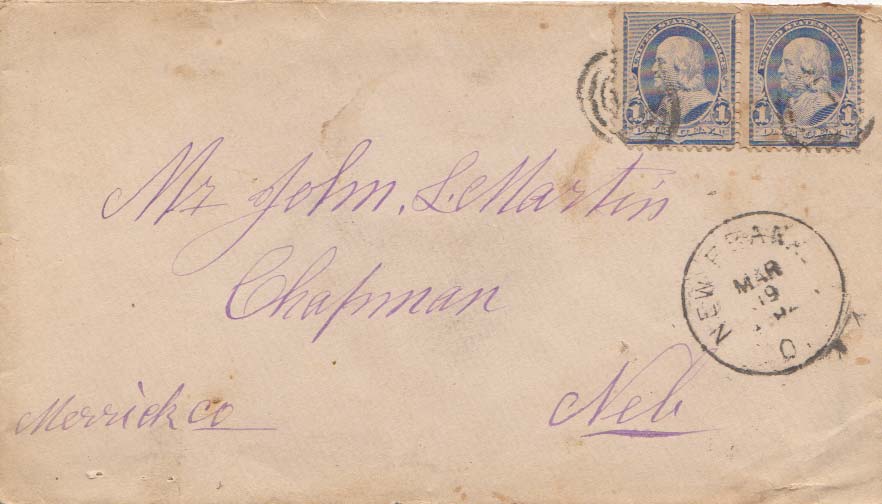 UNITED STATES POSTAGE UNITED STATES POSTAGE
1 ONE CENT 1 1 ONE CENT 1
Mr John. L. Martin
Chapman
Merrick co
Neb
NEW FRANK
MAR
19
O